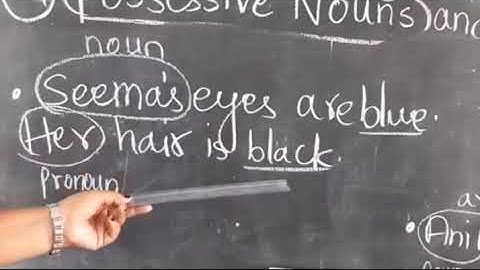 Possessive Nouns and
noun
Seema's eyes are blue.
Her hair is black.
Pronoun
Ani